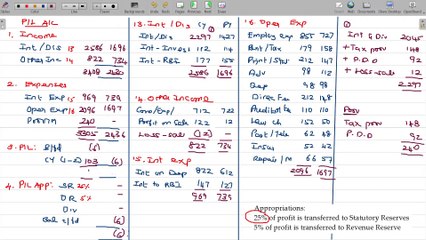 P/L A/C
1. Income
Int/Dis 13 2586 1696
Other Inc 14
2. Expenses
Int Exp 15 969 739
Oper Exp 16 2096 1697
Prov 240 -
3305 2436
3. P/L: B/fd
CY 103 (6)
4. P/L App: SR 25% -
DR 5% -
Div -
Bal c/fd (6)
(6)
13. Int / Dis CY PY
Int/Dis 2297 1427
Int - Invest 112 114
Int - RBI 177 155
2586 1696
14. Other Income
712 722
Profit on Sale 122 12
Loss - Sale (12) -
822 734
15. Int Exp
Int on Dep 822 612
Int to RBI 147 127
969 739
16 Oper Exp
Employ exp 855 727
Rent/Tax 179 158
Print/Stat 212 147
Adv 98 112
Dep 98 98
Direc Fee 212 148
Auditor fee 110 110
Law ch 152 50
Post/Tele 62 48
Insu 52 42
Repair/M 66 57
2096 1697
Int & Div 2045
+ Tax prov 148
+ P.D.D 92
+ Loss-Sale 12
2,297
Prov
Tax prov 148
P.D.D 92
240
Appropriations:
25% of profit is transferred to Statutory Reserves
5% of profit is transferred to Revenue Reserve